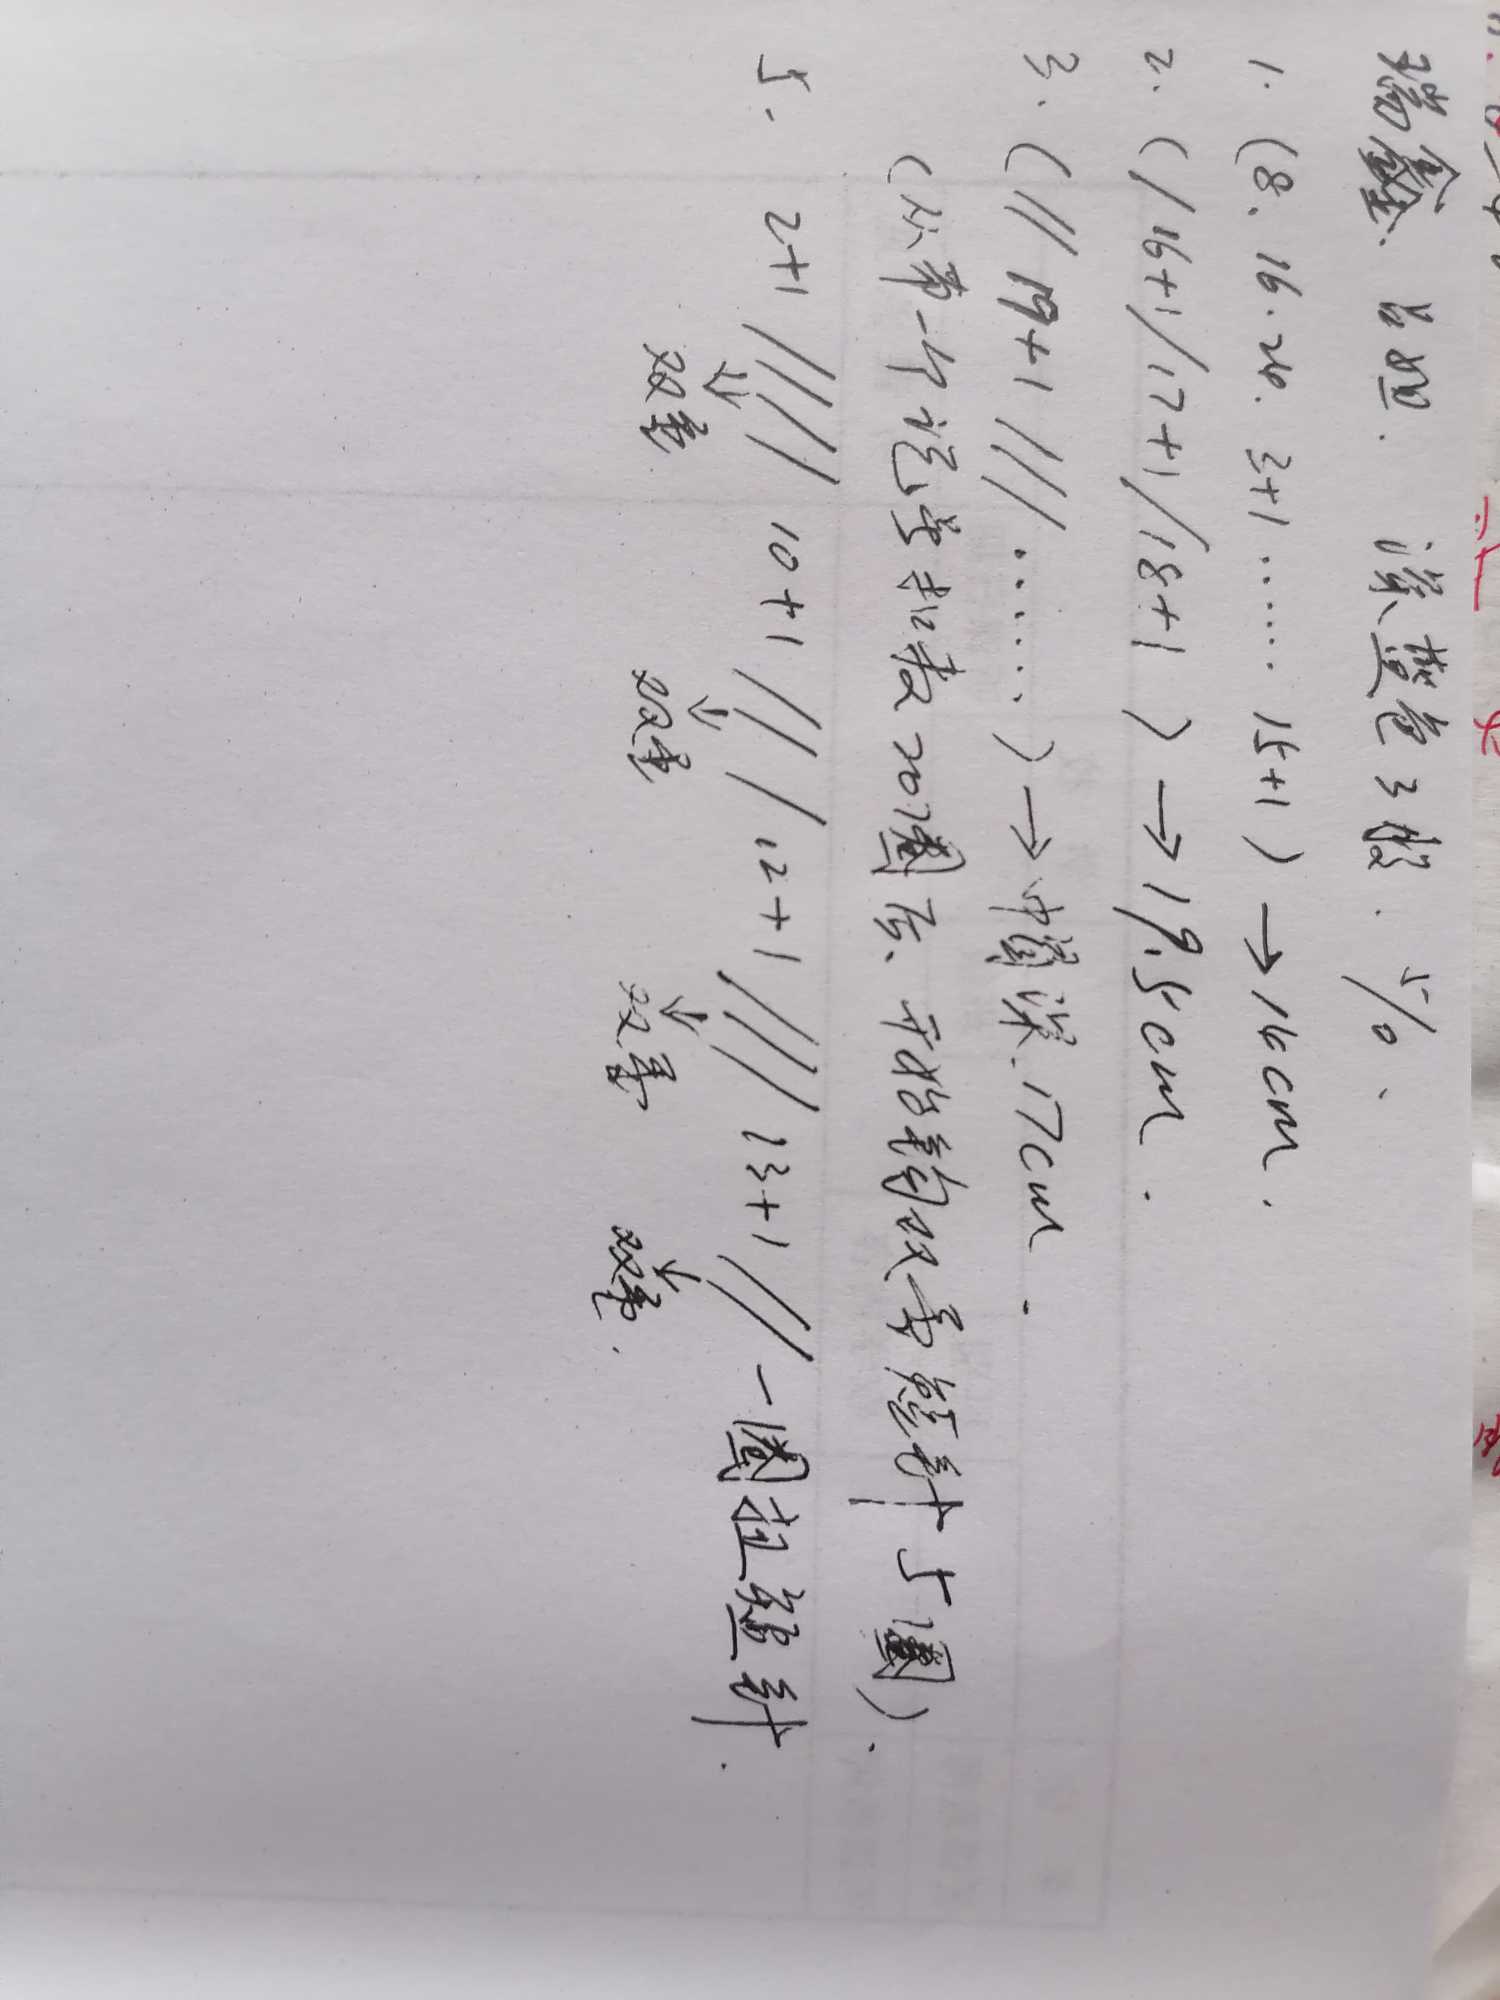 瑞鑫. 白西. 深蓝色3股. 5/0.
1. (8. 16. 24. 3+1 ...... 15+1) → 16cm.
2. (/ 16+1 / 17+1 / 18+1) → 19.5cm.
3. (// 19+1 /// ......) → 中间深.17cm.
(从第一个记号扣数20圈后. 开始钩双重短针5圈).
5. 2+1 ///// 10+1 /// / 12+1 //// 13+1 // 一圈拉短针.
双重 双重 双重 双重.